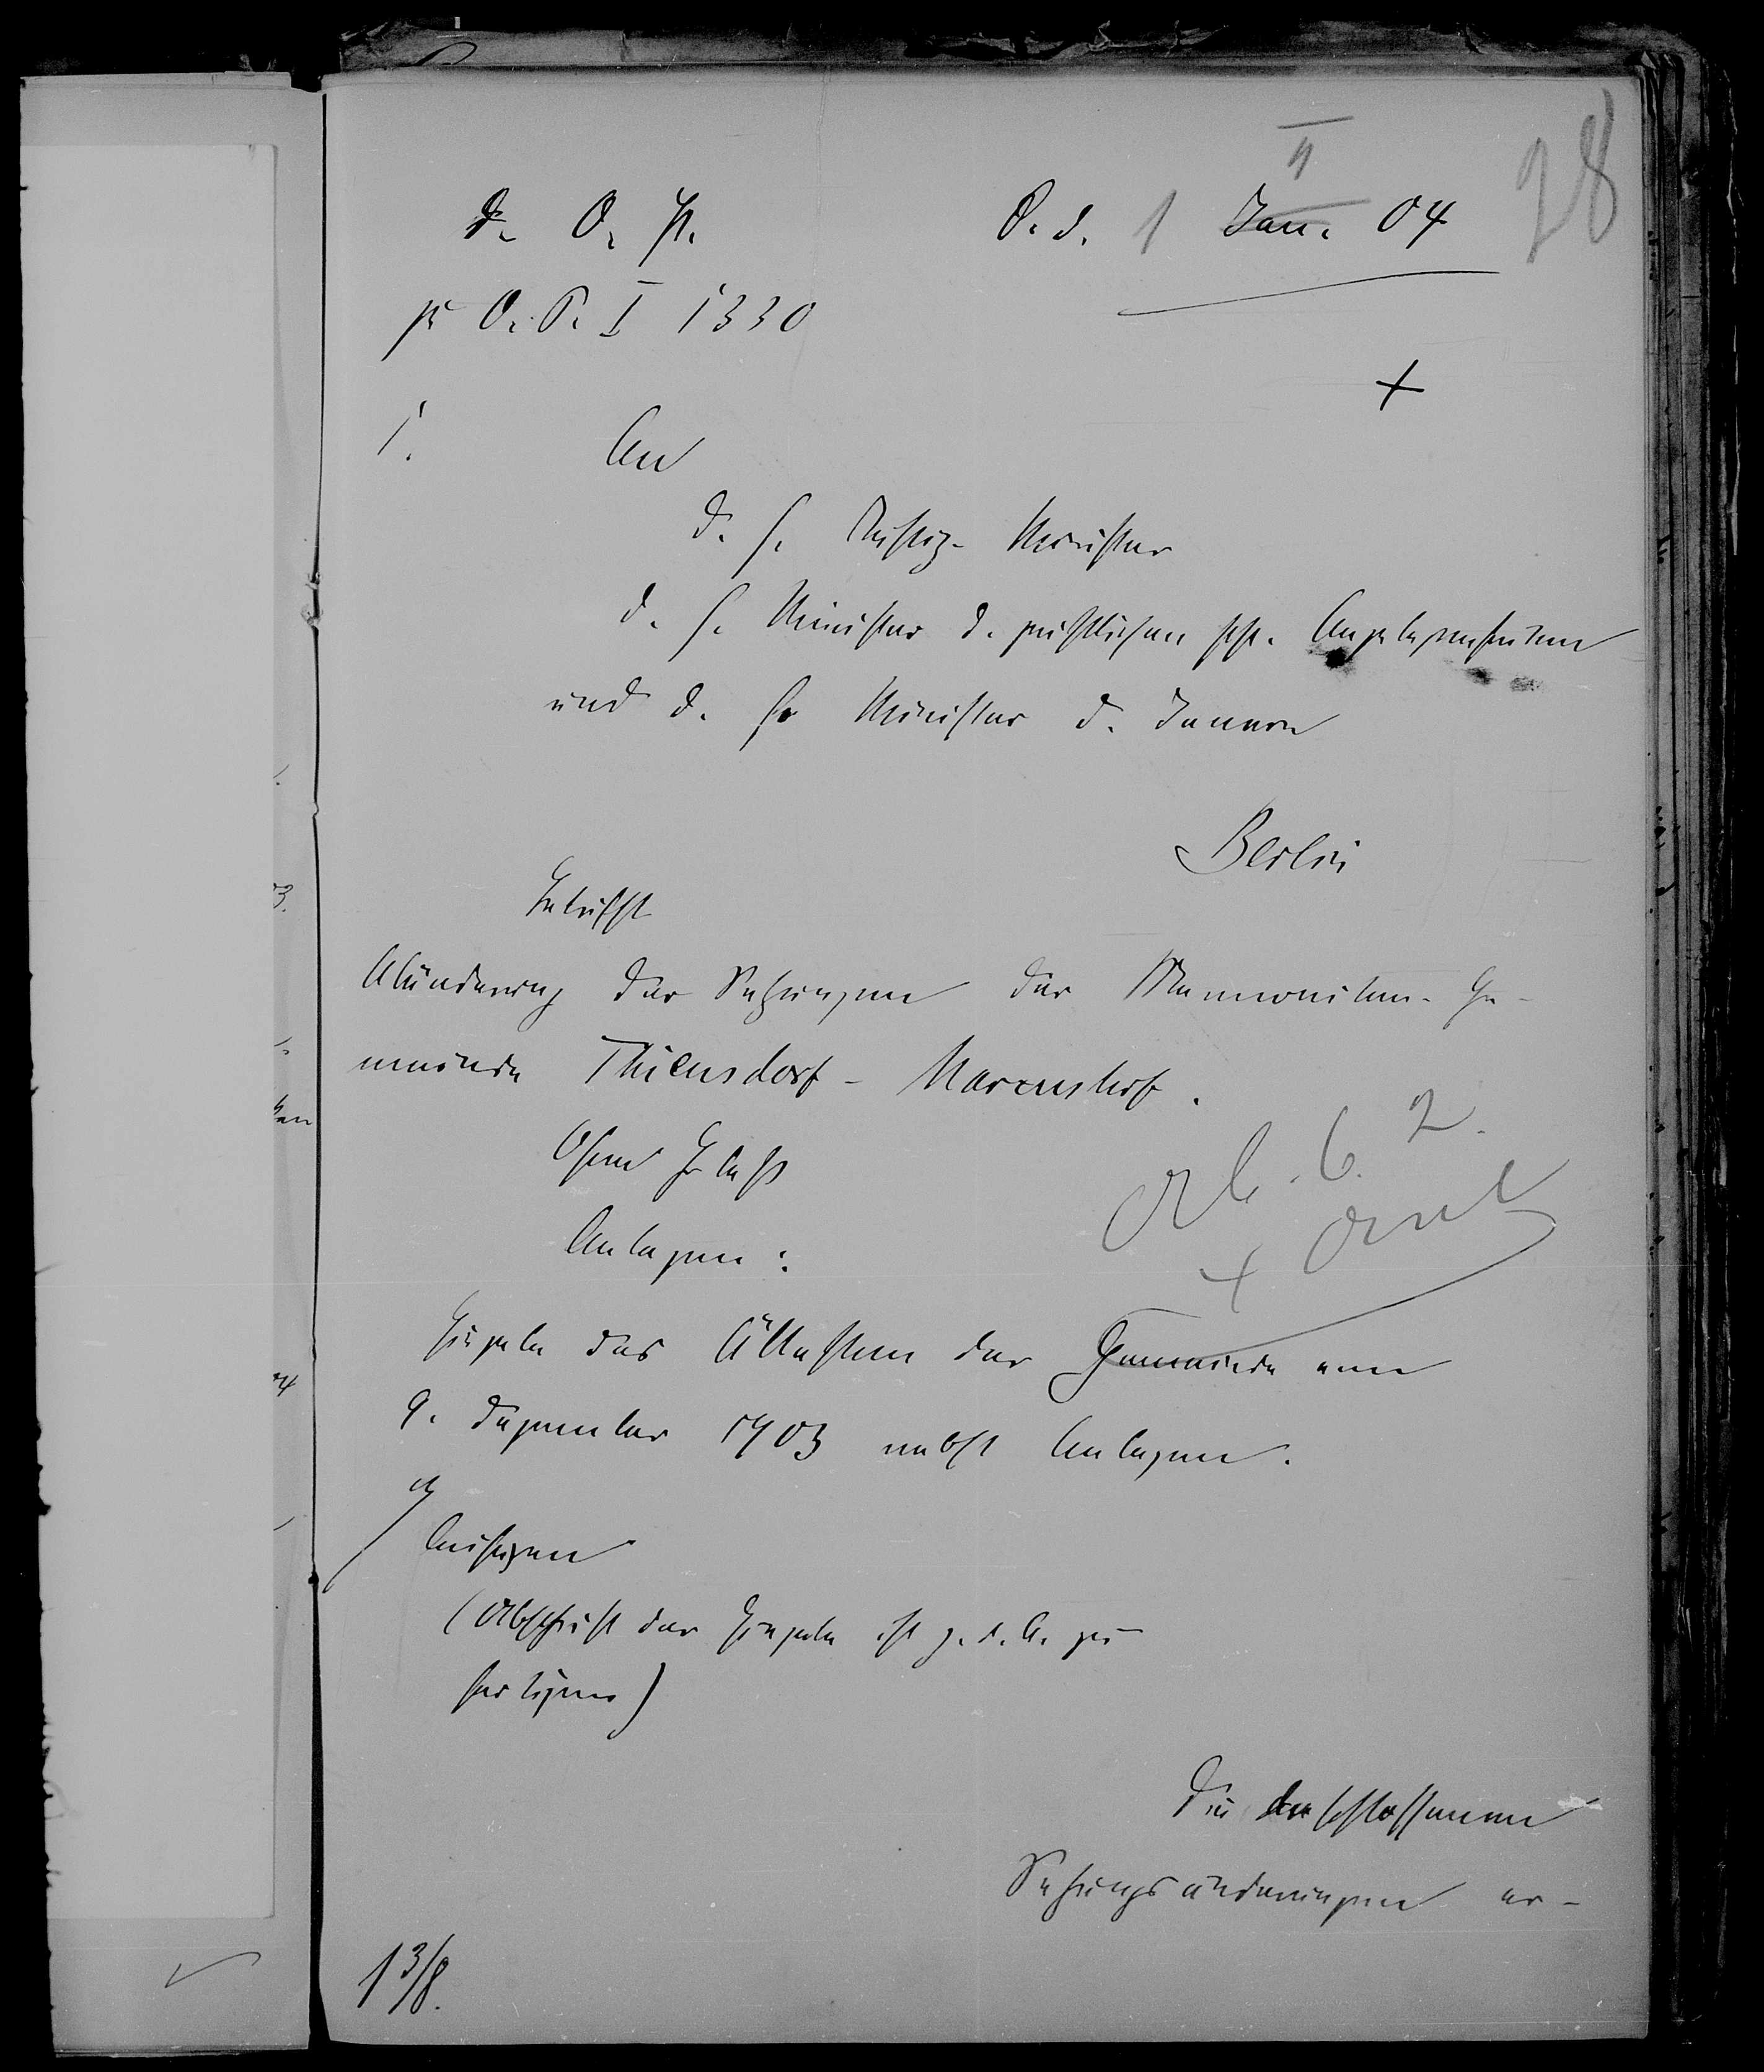 28
II
D. O. P. D. d. 1 Jan. 04
pr O. P. I 1330
+
1. An
d. H. Justiz-Minister
d. H. Minister d. geistlichen pp. Angelegenheiten
und d. Hr Minister d. Innern
Berlin
Betrifft
Abänderung der Satzungen der Mennoniten-Ge-
meinde Thiensdorf-Marcushof.
Ohne Erlaß
Anlagen:
Eingabe des Ältesten der Gemeinde vom
9. Dezember 1903 nebst Anlagen.
(Abschrift der Eingabe ist z. d. A. zu
fertigen)
Die beschlossenen
Satzungsänderungen er-
13/8.